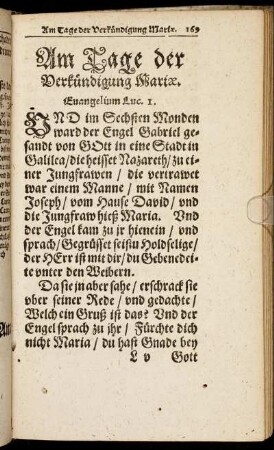 Am Tage der Verkündigung Mariæ. 169
Am Tage der
Verkündigung Mariæ.
Euangelium Luc. 1.
VND im Sechsten Monden
ward der Engel Gabriel ge-
sandt von GOtt in eine Stadt in
Galilea/die heisset Nazareth/zu ei-
ner Jungfrawen / die vertrawet
war einem Manne / mit Namen
Joseph/ vom Hause David/ vnd
die Jungfraw hieß Maria. Vnd
der Engel kam zu jr hienein / vnd
sprach/Gegrüsset seistu Holdselige/
der HErr ist mit dir/du Gebenedei-
te vnter den Weibern.
Da sie jn aber sahe/ erschrack sie
vber seiner Rede / vnd gedachte/
Welch ein Gruß ist das? Vnd der
Engel sprach zu jhr/ Fürchte dich
nicht Maria/ du hast Gnade bey
L v Gott